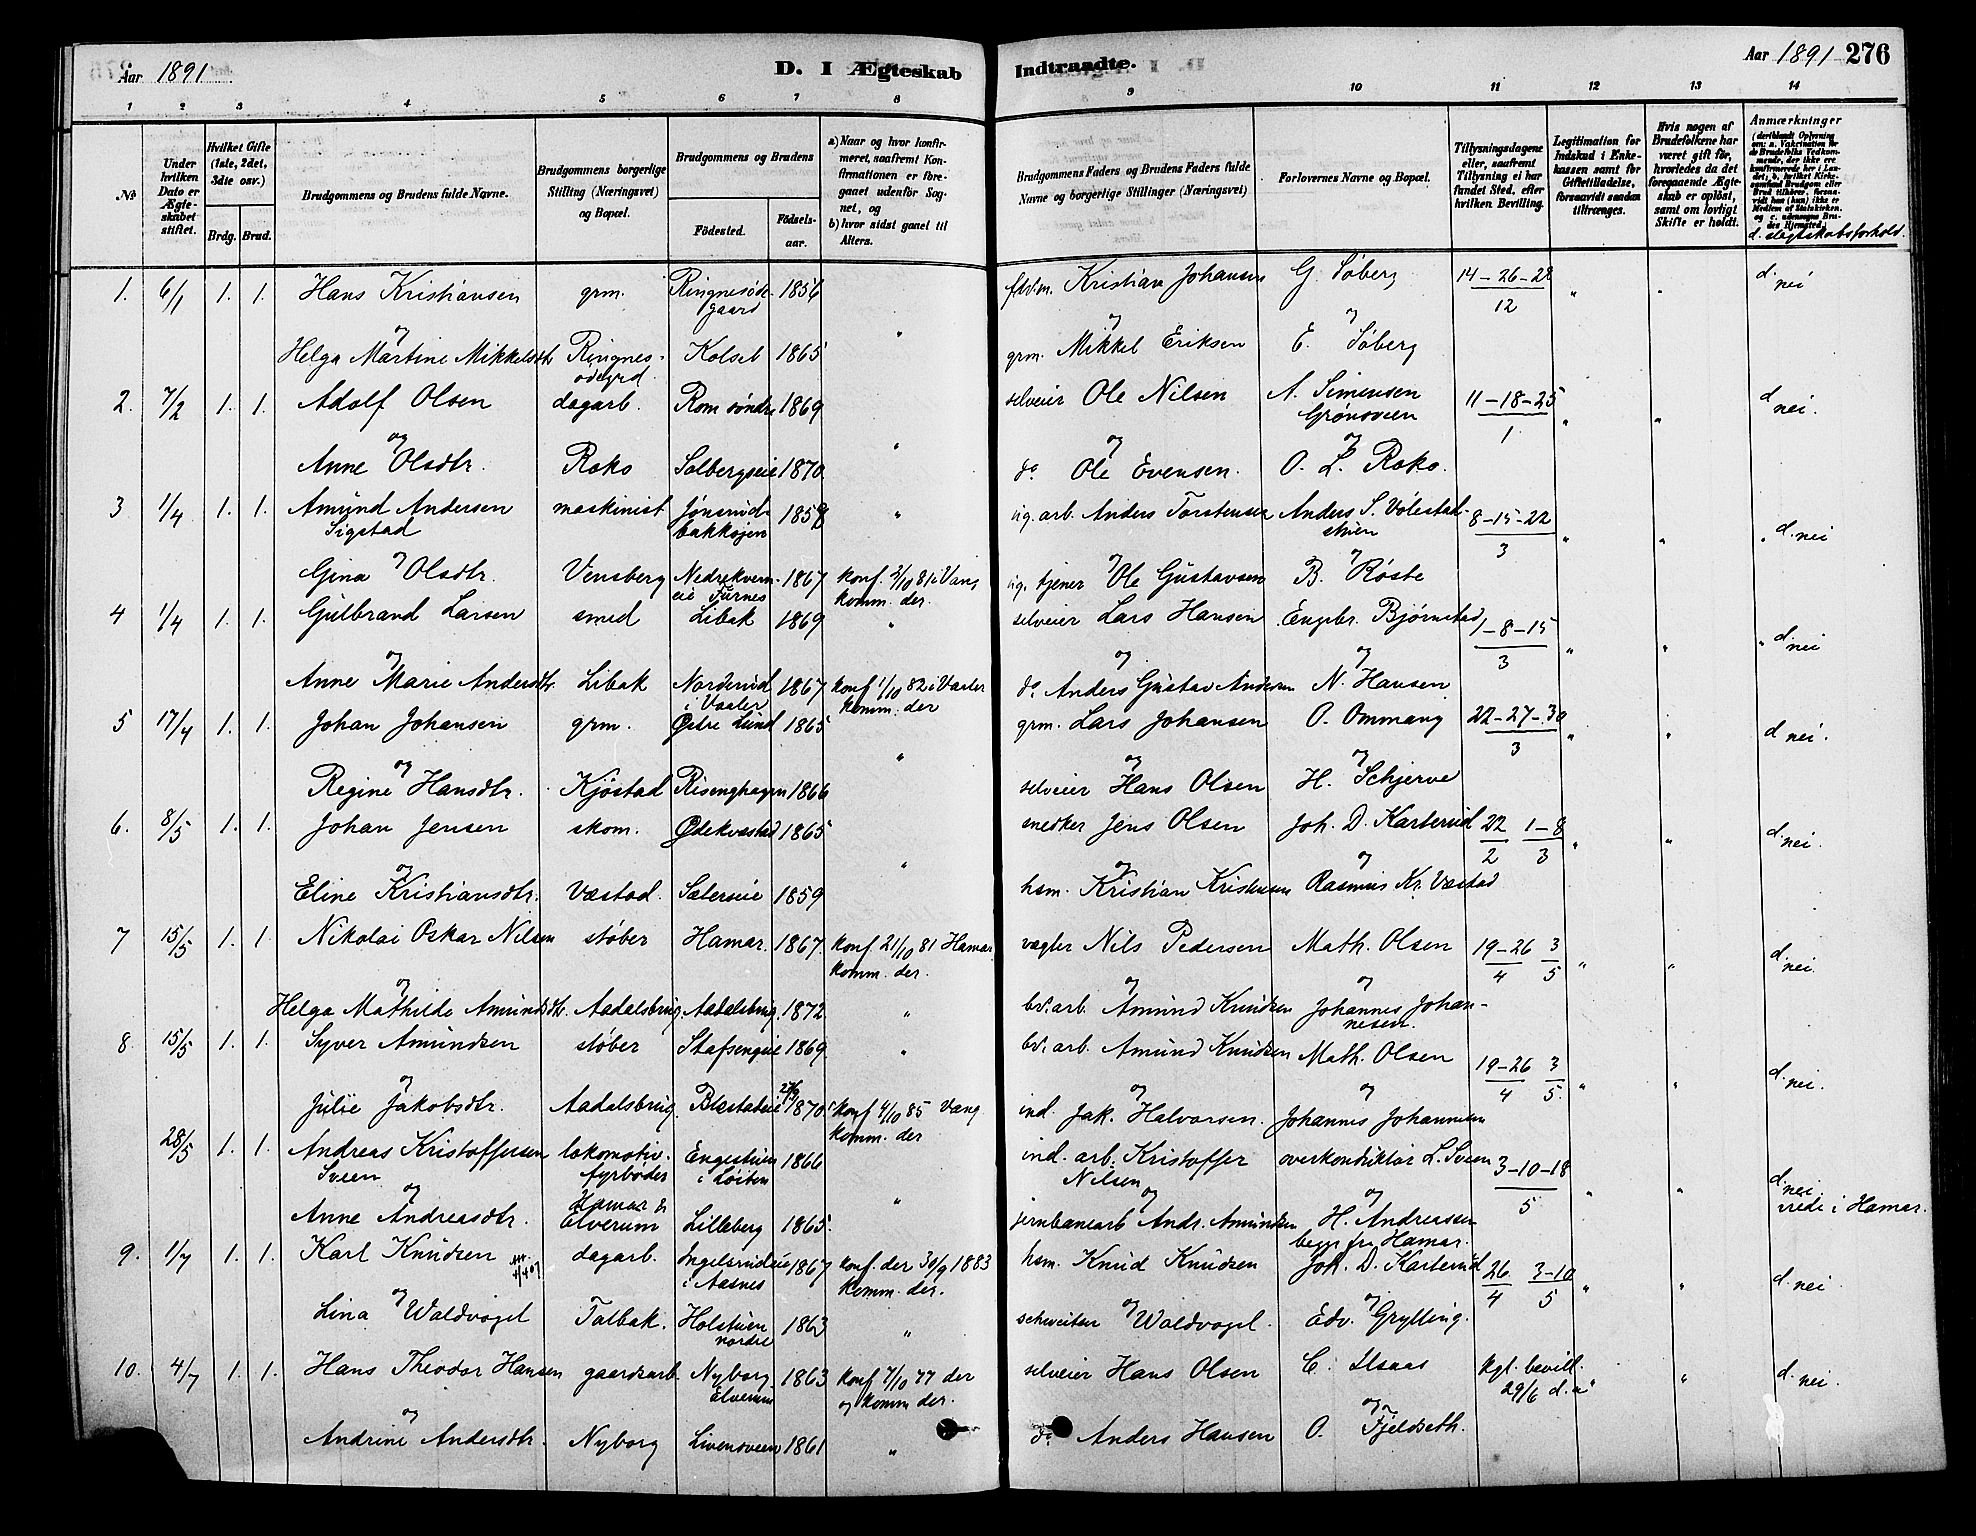 Aar 1891
D. I Ægteskab
Indtraadte.
Aar 1891 276
1 2 3 4 5 6 7 8 9 10 11 12 13 14
No
Under hvilken Dato er Ægteskabet stiftet.
Hvilket Gifte (1ste, 2det, 3die osv.)
Brdg. Brud.
Brudgommens og Brudens fulde Navne.
Brudgommens borgerlige Stilling (Næringsvei) og Bopæl.
Brudgommens og Brudens
Födested.
Födselsaar.
a) Naar og hvor konfirmeret, saafremt Konfirmationen er foregaaet udenför Sognet, og
b) hvor sidst gaaet til Alters.
Brudgommens Faders og Brudens Faders fulde Navne og borgerlige Stillinger (Næringsvei)
Forlovernes Navne og Bopæl.
Tillysningsdagene eller, saafremt Tillysning ei har fundet Sted, efter hvilken Bevilling.
Legitimation for Indskud i Enkekassen samt for Giftetilladelse, forsaavidt saadan tiltrænges.
Hvis nogen af Brudefolkene har været gift för, hvorledes da det foregaaende Ægteskab er oplöst, samt om lovligt Skifte er holdt.
Anmærkninger
d. slegtskabsforhold.
1. 6/1 1. 1. Hans Kristiansen grm. Ringnesödegaard 1856 " fhv.m. Kristian Johansen G. Søberg 14-26-28/12 " " d. nei
og og og
Helga Martine Mikkelsdtr Ringnesödegrd. Kolset 1865 grm. Mikkel Eriksen E. Søberg
2. 7/2 1. 1. Adolf Olsen dagarb. Rom söndre 1869 " selveier Ole Nilsen A. Simensen Grönsveen 11-18-25/1 " " d. nei
og og og
Anne Olsdtr. Roko Solbergseie 1870 do. Ole Evensen. O. L. Roko.
3 1/4 1. 1. Amund Andersen Sigstad maskinist Jönsrudbakköjen 1858 " ug. arb. Anders Torstensen Anders S. Volestadstuen 8-15-22/3 " " d. nei
og og og
Gina Olsdtr. Vensberg Nedrekverneie Furnes 1867 konf. 2/10 81 i Vang komm. der. ug. tjener Ole Gustavsen B. Røste
4 1/4 1. 1. Gulbrand Larsen smed Libak 1869 " selveier Lars Hansen Engebr. Bjørnstad 1-8-15/3 " " d. nei
og og og
Anne Marie Andersdtr. Libak Norderud i Vaaler 1867 konf 1/10 82 i Vaaler komm. der do. Anders Gustav Andersen N. Hansen
5 17/4 1. 1. Johan Johansen grm. Østre Lund 1865 " grm. Lars Johansen O. Ommang 22-27-30/3 " " d. nei.
og og og
Regine Hansdtr. Kjöstad Risenghagen 1866 selveier Hans Olsen H. Schjerve
6. 8/5 1. 1. Johan Jensen skom. Ødekvæstad 1865 " snedker Jens Olsen Joh. D. Karterud 22/2 1-8/3 " " d. nei.
og og og
Eline Kristiansdtr. Væstad. Sæterseie 1859 hsm. Kristian Kristensen Rasmus Kr. Væstad
7 15/5 1. 1. Nikolai Oskar Nilsen støber Hamar. 1867. konf 21/10 81 Hamar komm. der. vægter Nils Pedersen Math. Olsen 19-26/4 3/5 " " d. nei.
og og og
Helga Mathilde Amundsdtr. Aadalsbrug Aadalsbrug. 1872 " bv. arb. Amund Knudsen Johannes Johannesen.
8. 15/5 1. 1. Syver Amundsen støber Stafsengeie 1869 " bv. arb. Amund Knudsen Math. Olsen 19-26/4 3/5. " " d. nei.
og og og
Julie Jakobsdtr. Aadalsbrug Blestadeie 1870 konf 4/10 85 Vang komm. der ind. Jak. Halvorsen. Johannes Johannesen
28/5 1. 1. Andreas Kristoffersen Sveen lokomotivfyrböder Engestuen i Løiten 1866 " ind. arb. Kristoffer Nilsen overkonduktör L. Sveen 3-10-18/5 " " d. nei
og og og
Anne Andreasdtr. Hamar & Elverum Lilleberg 1865. jernbanearb Andr. Amundsen H. Andreassen begge fra Hamar. viede i Hamar.
9. 1/7 1. 1. Karl Knudsen dagarb. Ingelsrudeie i Aasnes 1867 konf. der 30/9 1883 komm. der. hsm. Knud Knudsen Joh. D. Karterud 26/4 3-10/5 " " d. nei.
og og og
Lina Waldvogel Talbak. Holstuen nordre 1863 " schweitzer Waldvogel. Edv. Grylling.
10. 4/7 1. 1. Hans Theodor Hansen gaardsarb. Nyborg Elverum 1863 konf 7/10 77 der og komm der. selveier Hans Olsen C. Ilsaas kgl. bevill. 29/6 d. a. " " d. nei.
og og
Andrine Andersdtr. Nyborg Livensveen 1861 " do. Anders Hansen O. Fjeldseth.